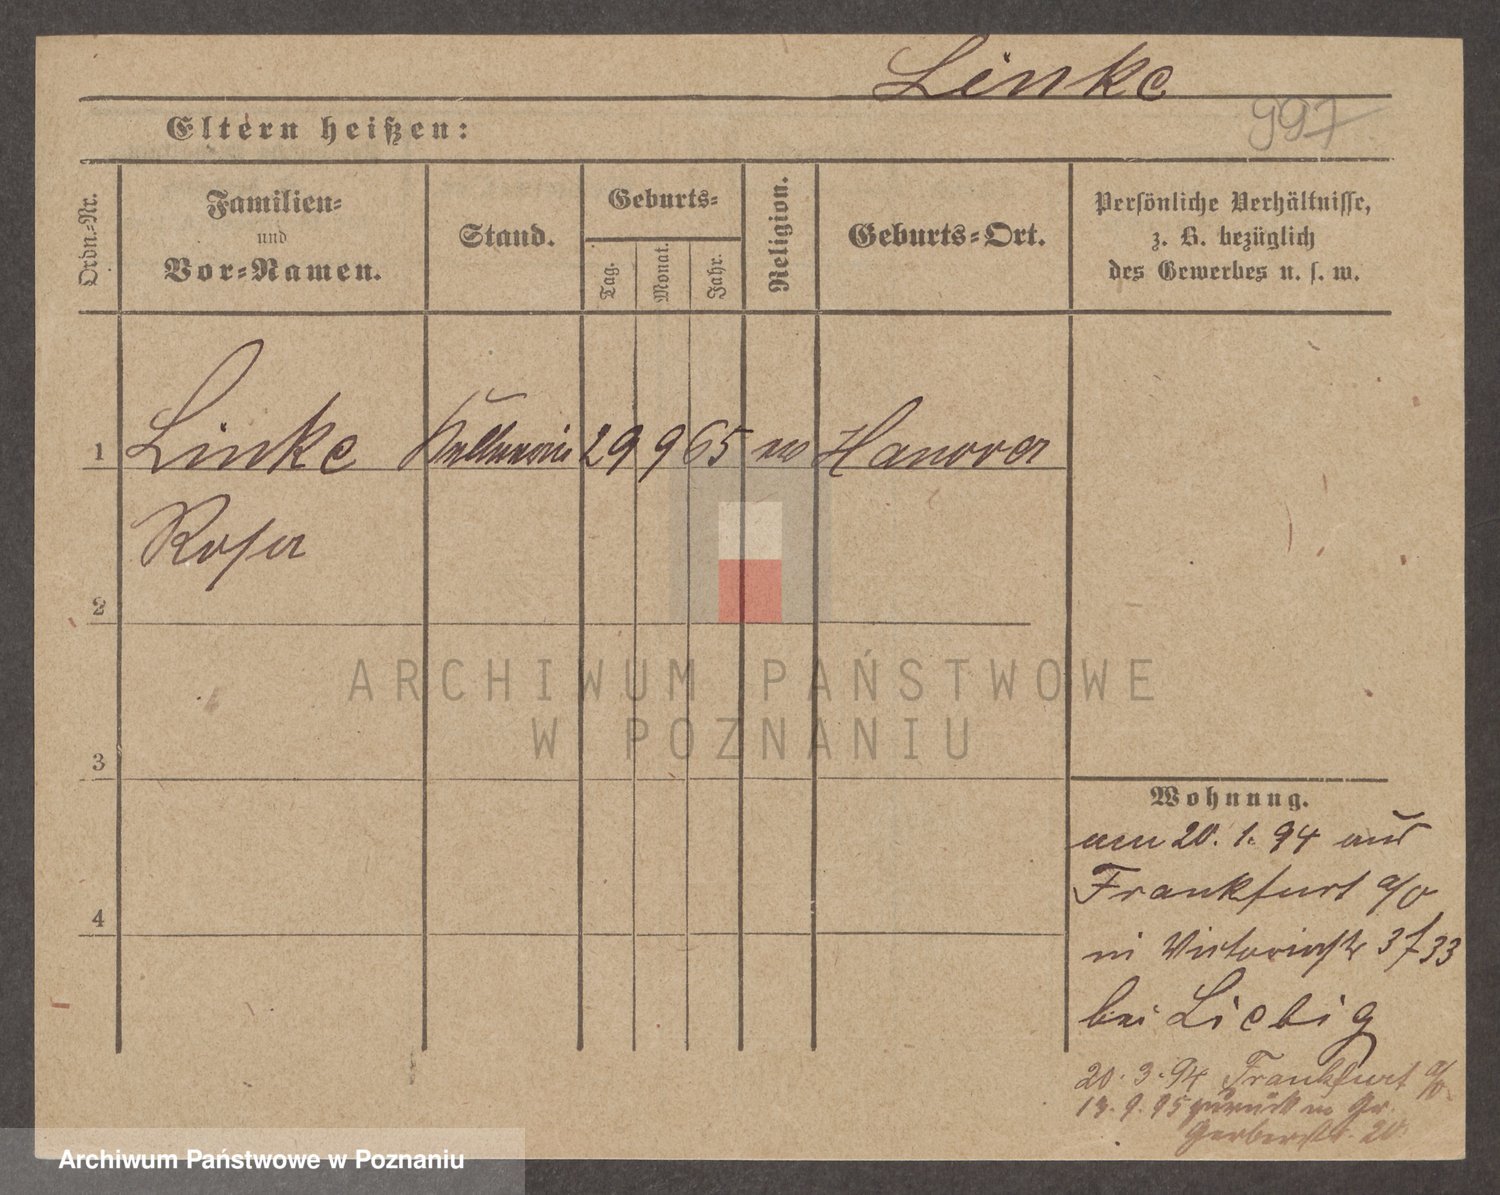 Linke
997
Eltern heißen:
Ordn.-Nr.
Familien-
und
Vor-Namen.
Stand.
Geburts-
Tag.
Monat.
Jahr.
Religion.
Geburts-Ort.
Persönliche Verhältnisse,
z. B. bezüglich
des Gewerbes u. s. w.
1 Linke Kellnerin 29 9 65 Hanover
Rosa
2
ARCHIWUM PAŃSTWOWE
W POZNANIU
3
Wohnung.
am 20. 1. 94 aus
Frankfurt a/O
in Victoriastr 33
bei Liebig
4
20. 3. 94 Frankfurt a/O
13. 9. 95 zurück in Gr.
Gerberstr. 20.
Archiwum Państwowe w Poznaniu